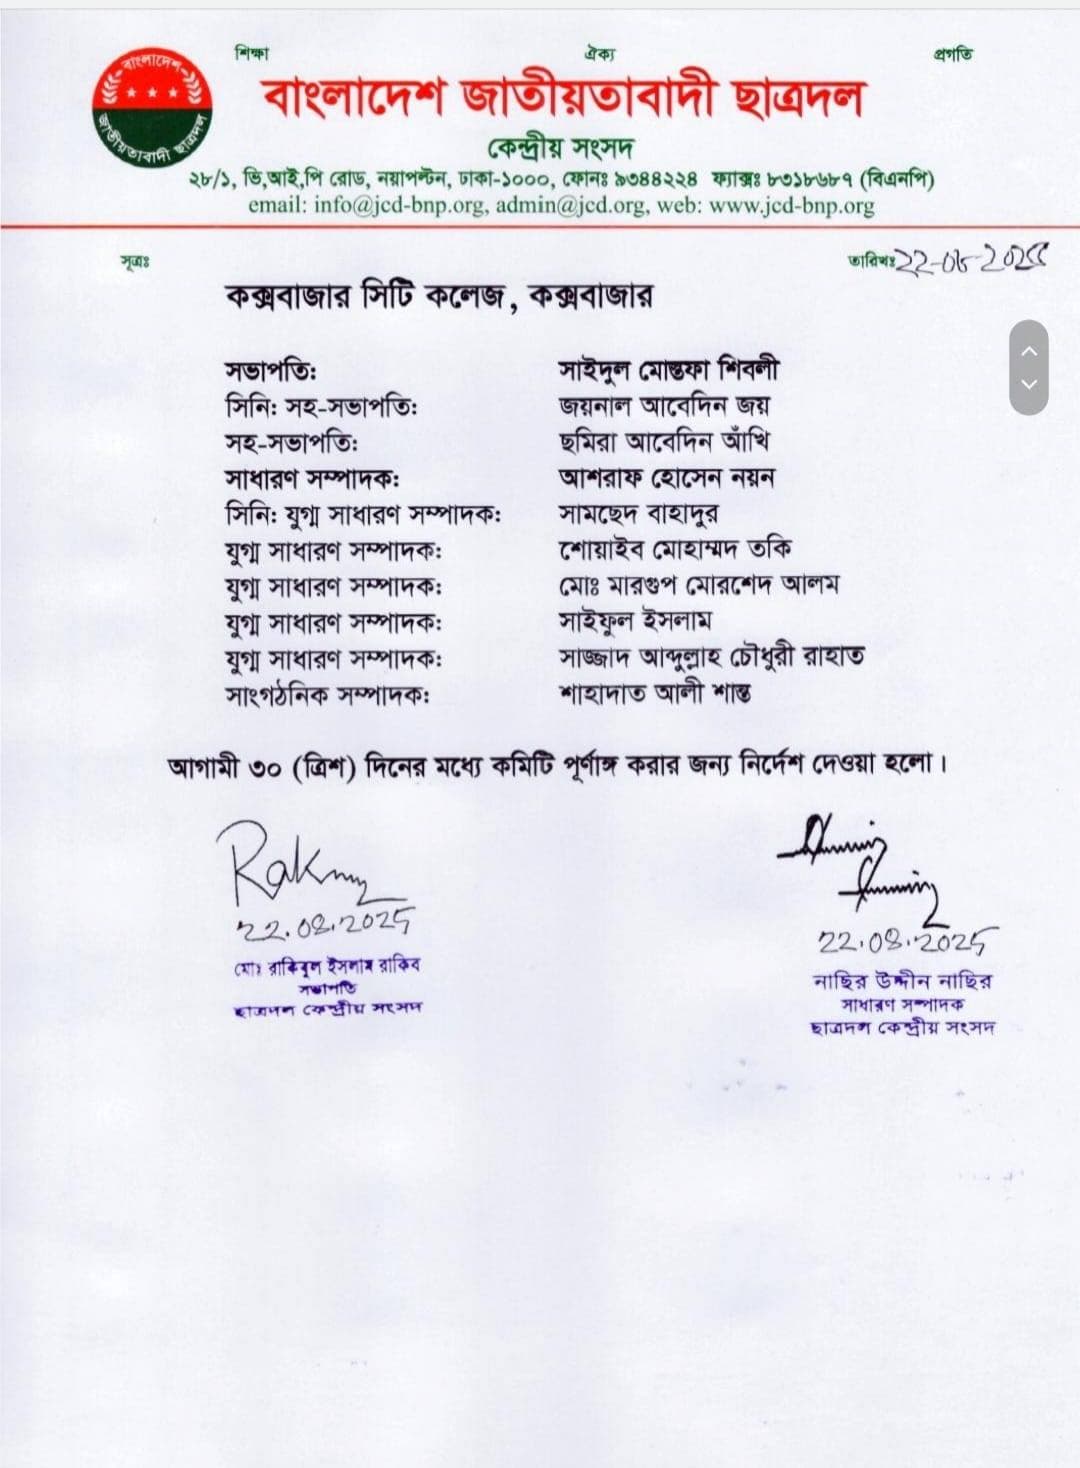 শিক্ষা ঐক্য প্রগতি
বাংলাদেশ জাতীয়তাবাদী ছাত্রদল
বাংলাদেশ জাতীয়তাবাদী ছাত্রদল
কেন্দ্রীয় সংসদ
২৮/১, ভি,আই,পি রোড, নয়াপল্টন, ঢাকা-১০০০, ফোনঃ ৯৩৪৪২২৪ ফ্যাক্সঃ ৮৩১৮৬৮৭ (বিএনপি)
email: info@jcd-bnp.org, admin@jcd.org, web: www.jcd-bnp.org
সূত্রঃ তারিখঃ 22-08-2025
কক্সবাজার সিটি কলেজ, কক্সবাজার
সভাপতি: সাইদুল মোস্তফা শিবলী
সিনি: সহ-সভাপতি: জয়নাল আবেদিন জয়
সহ-সভাপতি: ছমিরা আবেদিন আঁখি
সাধারণ সম্পাদক: আশরাফ হোসেন নয়ন
সিনি: যুগ্ম সাধারণ সম্পাদক: সামছেদ বাহাদুর
যুগ্ম সাধারণ সম্পাদক: শোয়াইব মোহাম্মদ তকি
যুগ্ম সাধারণ সম্পাদক: মোঃ মারগুপ মোরশেদ আলম
যুগ্ম সাধারণ সম্পাদক: সাইফুল ইসলাম
যুগ্ম সাধারণ সম্পাদক: সাজ্জাদ আব্দুল্লাহ চৌধুরী রাহাত
সাংগঠনিক সম্পাদক: শাহাদাত আলী শান্ত
আগামী ৩০ (ত্রিশ) দিনের মধ্যে কমিটি পূর্ণাঙ্গ করার জন্য নির্দেশ দেওয়া হলো।
22.08.2025
22.08.2025
মোঃ রাকিবুল ইসলাম রাকিব
সভাপতি
ছাত্রদল কেন্দ্রীয় সংসদ
নাছির উদ্দীন নাছির
সাধারণ সম্পাদক
ছাত্রদল কেন্দ্রীয় সংসদ